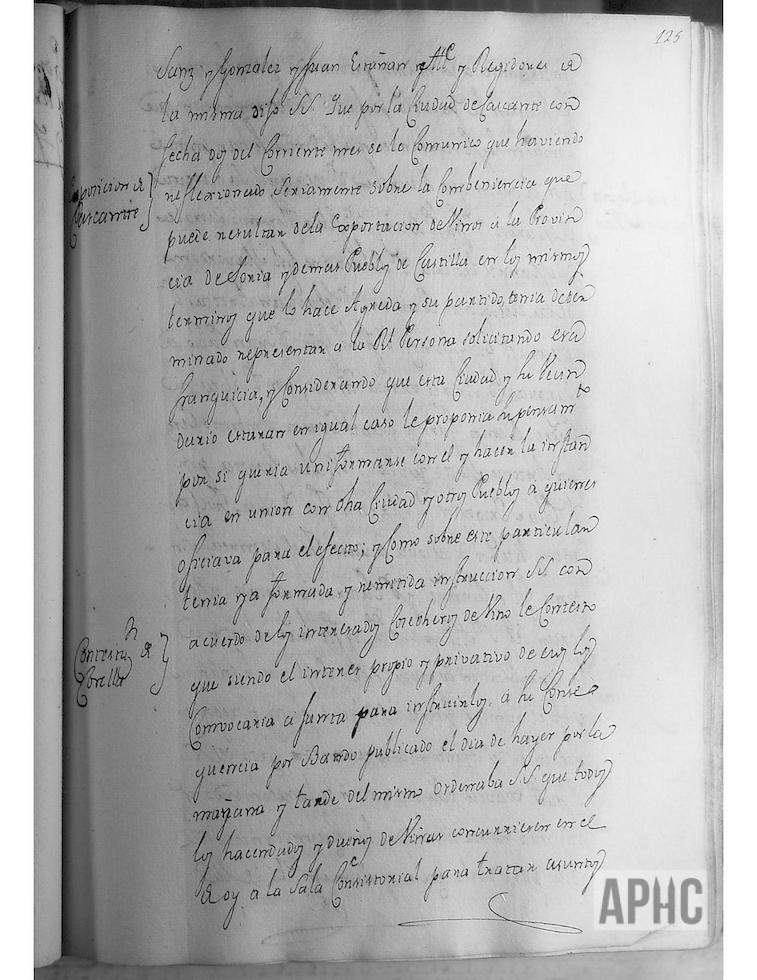 125
Sanz y Gonzalez y Juan y Regidores de
la misma dijo SS. Que por la Ciudad de Cascante con
fecha dos del Corriente mes se le Comunico que haviendo
reflexionado Seriamente sobre la Combeniencia que
Exposicion de
Cascante
puede resultar dela Exportacion de Vinos a la Provin
cia de Soria y demas Pueblos de Castilla en los mismos
terminos que lo hace Agreda y su partido tenia deter
minado representar a la Rl Persona solicitando esta
franquicia, y Considerando que esta Ciudad y su Vecin
dario estaran en igual caso le proponia su pensamto
por si queria uniformarse con el y hacer la instan
cia en union con dha Ciudad y otros Pueblos a quienes
oficiava para el efecto; y Como sobre este particular
tenia ya formada y remitida instruccion SS. con
acuerdo de los interesados Cosecheros de Vino le Contesto
Conteston de
Corella
que siendo el interes propio y privativo de esos los
Convocaria a Junta para instruirlos, a su Conse
quencia por Bando publicado el dia de hayer por la
mañana y tarde del mismo Ordenaba SS. que todos
los hacendados y dueños de Viñas concurriesen en el
de oy a la Sala Consistorial para tratar asuntos
APHC